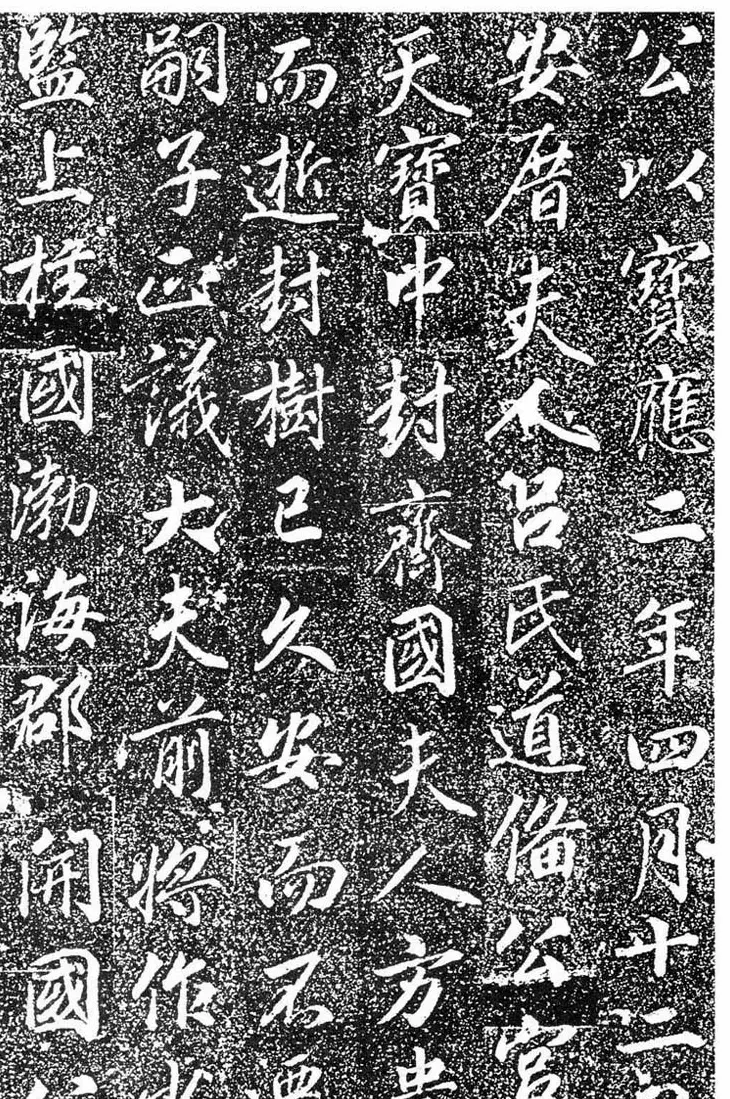 公以寶應二年四月十二
安厝夫人呂氏道備公宮
天寶中封齊國夫人方貴
而逝封樹已久安而不
嗣子正議大夫前將作
監上柱國渤海郡開國